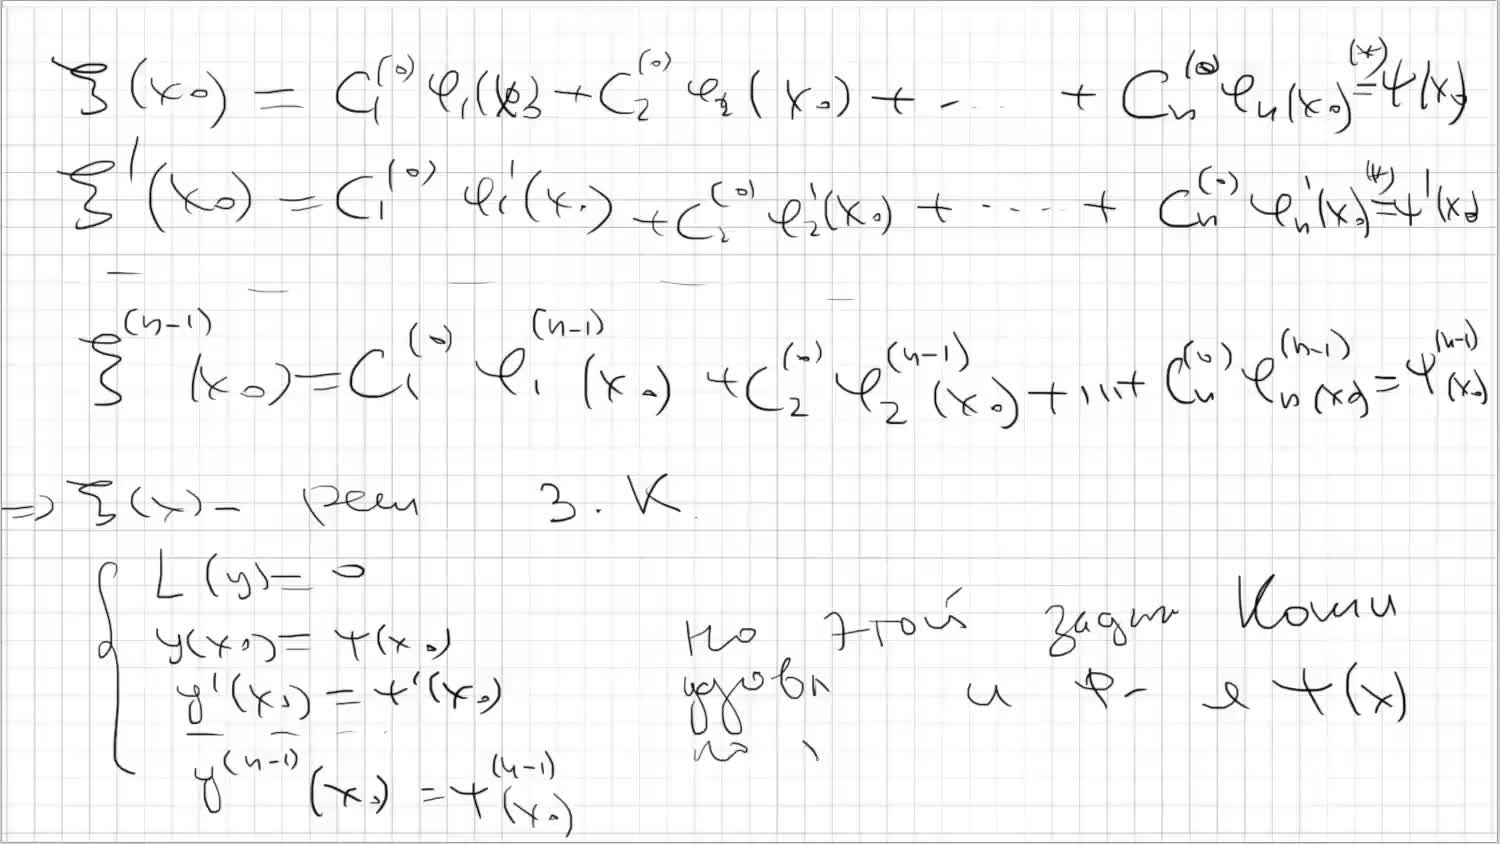 ξ(x₀) = C₁⁽⁰⁾ φ₁(x₀) + C₂⁽⁰⁾ φ₂(x₀) + .... + Cₙ⁽⁰⁾ φₙ(x₀) =⁽*⁾ ψ(x₀)
ξ'(x₀) = C₁⁽⁰⁾ φ₁'(x₀) + C₂⁽⁰⁾ φ₂'(x₀) + ..... + Cₙ⁽⁰⁾ φₙ'(x₀) =⁽*⁾ ψ'(x₀)
— — — — —
ξ⁽ⁿ⁻¹⁾(x₀) = C₁⁽⁰⁾ φ₁⁽ⁿ⁻¹⁾(x₀) + C₂⁽⁰⁾ φ₂⁽ⁿ⁻¹⁾(x₀) + ... + Cₙ⁽⁰⁾ φₙ⁽ⁿ⁻¹⁾(x₀) = ψ⁽ⁿ⁻¹⁾(x₀)
=> ξ(x) - реш З.К.
{ L(y) = 0
y(x₀) = ψ(x₀)
y'(x₀) = ψ'(x₀)
— — —
y⁽ⁿ⁻¹⁾(x₀) = ψ⁽ⁿ⁻¹⁾(x₀)
но этой задачи Коши
удовл и ф-я ψ(x)
по